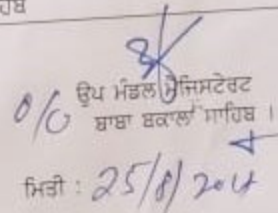 o/c ਉਪ ਮੰਡਲ ਮੈਜਿਸਟਰੇਟ
ਬਾਬਾ ਬਕਾਲਾ ਸਾਹਿਬ ।
ਮਿਤੀ : 25/8/2014